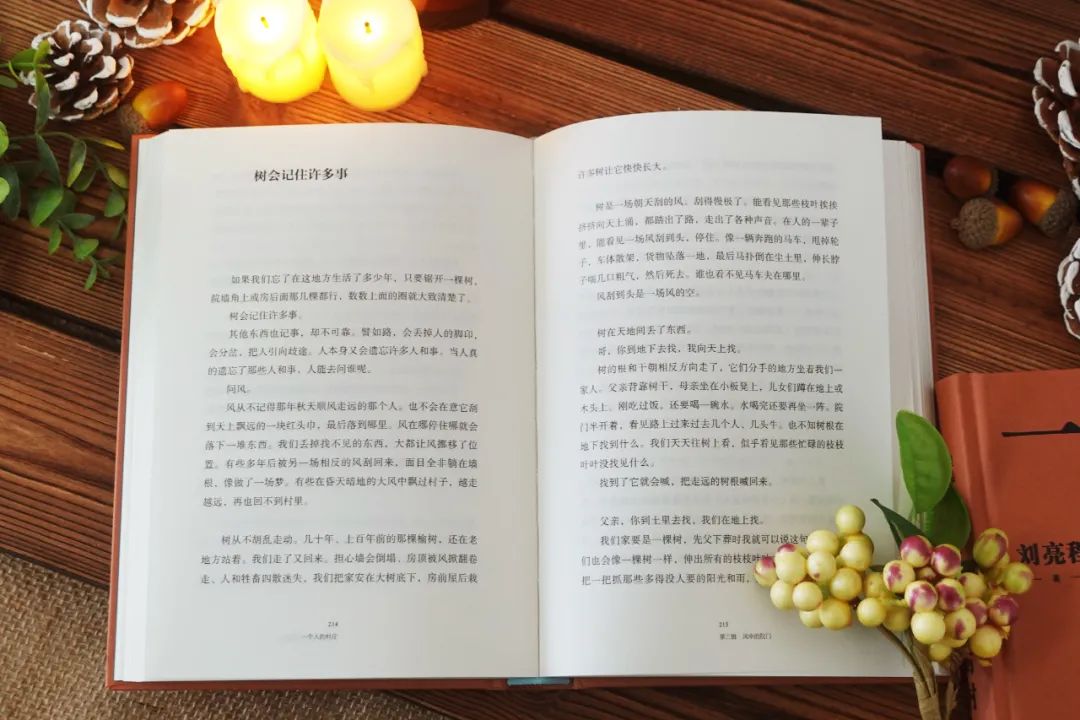 树会记住许多事
如果我们忘了在这地方生活了多少年，只要锯开一棵树，
院墙角上或房后面那几棵都行，数数上面的圈就大致清楚了。
树会记住许多事。
其他东西也记事，却不可靠。譬如路，会丢掉人的脚印，
会分岔，把人引向歧途。人本身又会遗忘许多人和事。当人真
的遗忘了那些人和事，人能去问谁呢。
问风。
风从不记得那年秋天顺风走远的那个人。也不会在意它刮
到天上飘远的一块红头巾，最后落到哪里。风在哪停住哪就会
落下一堆东西。我们丢掉找不见的东西，大都让风挪移了位
置。有些多年后被另一场相反的风刮回来，面目全非躺在墙
根，像做了一场梦。有些在昏天暗地的大风中飘过村子，越走
越远，再也回不到村里。
树从不胡乱走动。几十年、上百年前的那棵榆树，还在老
地方站着。我们走了又回来。担心墙会倒塌、房顶被风掀翻卷
走、人和牲畜四散迷失，我们把家安在大树底下，房前屋后栽
214
一个人的村庄
许多树让它快快长大。
树是一场朝天刮的风。刮得慢极了。能看见那些枝叶挨挨
挤挤向天上涌，都踏出了路，走出了各种声音。在人的一辈子
里，能看见一场风刮到头，停住。像一辆奔跑的马车，甩掉轮
子，车体散架，货物坠落一地，最后马扑倒在尘土里，伸长脖
子喘几口粗气，然后死去。谁也看不见马车夫在哪里。
风刮到头是一场风的空。
树在天地间丢了东西。
哥，你到地下去找，我向天上找。
树的根和干朝相反方向走了，它们分手的地方坐着我们一
家人。父亲背靠树干，母亲坐在小板凳上，儿女们蹲在地上或
木头上。刚吃过饭。还要喝一碗水。水喝完还要再坐一阵。院
门半开着，看见路上过来过去几个人、几头牛。也不知树根在
地下找到什么。我们天天往树上看，似乎看见那些忙碌的枝枝
叶叶没找见什么。
找到了它就会喊，把走远的树根喊回来。
父亲，你到土里去找，我们在地上找。
我们家要是一棵树，先父下葬时我就可以说这句
们也会像一棵树一样，伸出所有的枝枝叶
把一把抓那些多得没人要的阳光和雨，
215
第三辑 风中的院门
一
刘亮程
著